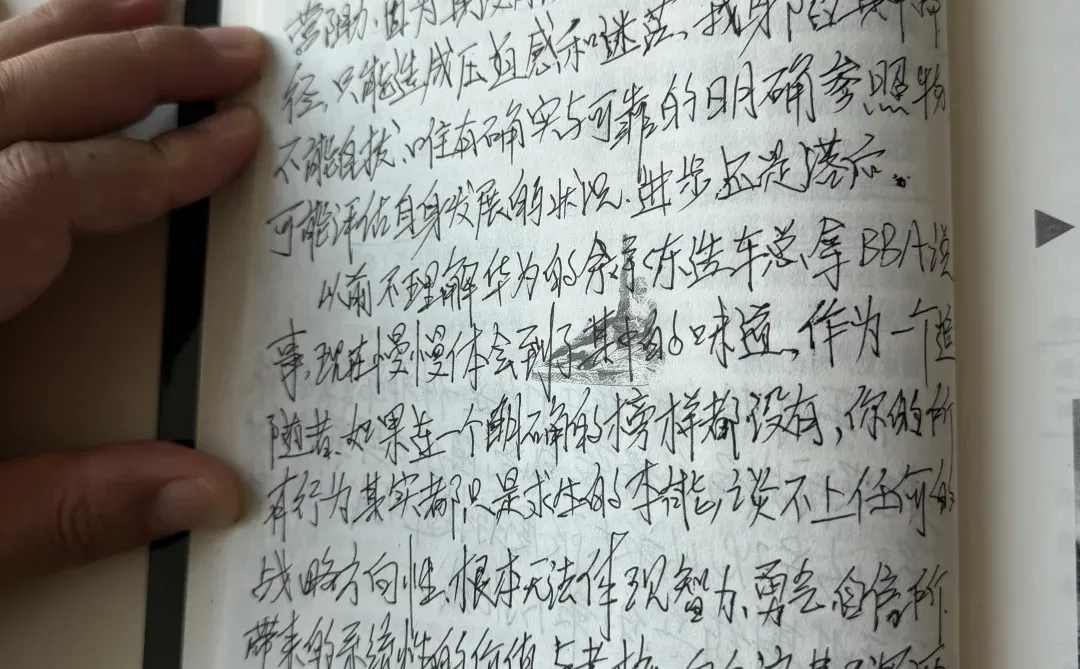 营阻力.因为
径,只能造成压迫感和迷茫、我身陷其中
不能自拔.唯有确实与可靠的明确参照物
可能评估自身发展的状况.进步还是落后.
以前不理解华为的余承东造车总拿BBA说
事,现在慢慢体会到了其中的味道,作为一个追
随者.如果连一个明确的榜样都没有,你的所
有行为其实都只是求生的本能,谈不上任何的
战略方向性.根本无法体现智力、勇气、自信所
带来的系统性的价值